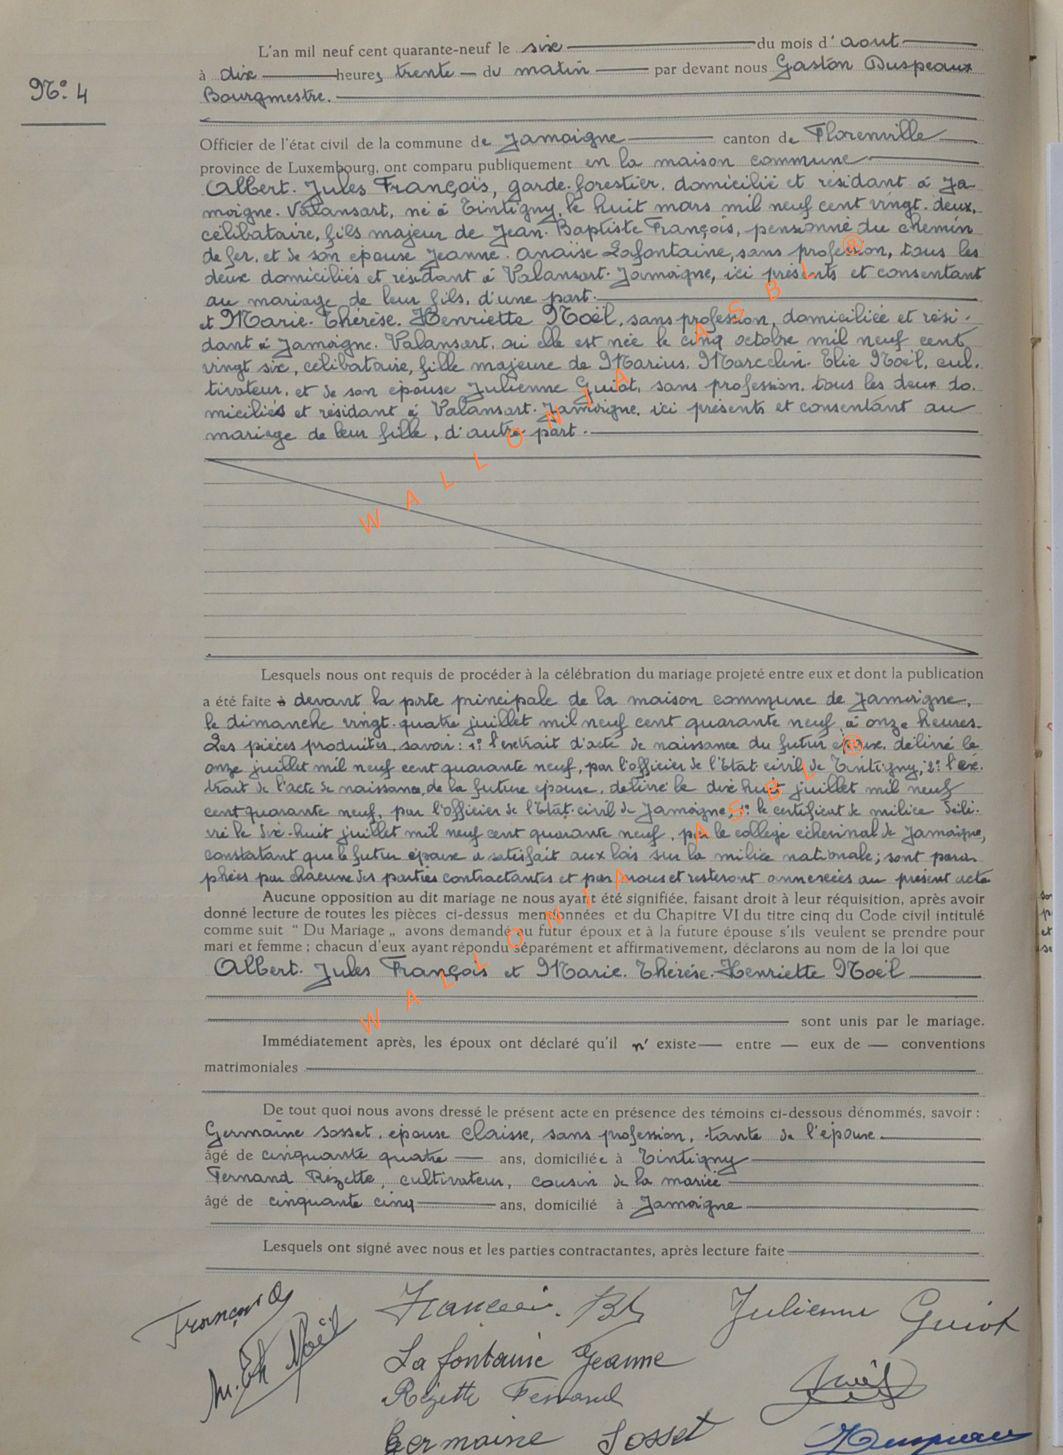 N° 4
L'an mil neuf cent quarante-neuf le six du mois d'aout
à dix heures trente du matin par devant nous Gaston Duspeaux
Bourgmestre.
Officier de l'état civil de la commune de Jamoigne canton de Florenville
province de Luxembourg, ont comparu publiquement en la maison commune
Albert. Jules François, garde-forestier, domicilié et résidant à Ja-
moigne. Valansart, né à Tintigny, le huit mars mil neuf cent vingt-deux,
célibataire, fils majeur de Jean-Baptiste François, pensionné du chemin
de fer, et de son épouse Jeanne. Anaïse Lafontaine, sans profession, tous les
deux domiciliés et résidant à Valansart-Jamoigne, ici présents et consentant
au mariage de leur fils, d'une part.
et Marie. Thérèse. Henriette Noël, sans profession, domiciliée et rési-
dant à Jamoigne. Valansart, où elle est née le cinq octobre mil neuf cent
vingt six, célibataire, fille majeure de Marius. Marcelin. Elie Noël, cul-
tivateur, et de son épouse Julienne Guiot, sans profession. tous les deux do-
miciliés et résidant à Valansart-Jamoigne, ici présents et consentant au
mariage de leur fille, d'autre part.
Lesquels nous ont requis de procéder à la célébration du mariage projeté entre eux et dont la publication
a été faite devant la porte principale de la maison commune de Jamoigne,
le dimanche vingt-quatre juillet mil neuf cent quarante neuf, à onze heures.
Les pièces produites, savoir: 1° l'extrait d'acte de naissance du futur époux, délivré le
onze juillet mil neuf cent quarante neuf, par l'officier de l'Etat-civil de Tintigny; 2° l'ex-
trait de l'acte de naissance, de la future épouse, délivré le dix huit juillet mil neuf
cent quarante neuf, par l'officier de l'Etat-civil de Jamoigne; 3° le certificat de milice déli-
vré le dix-huit juillet mil neuf cent quarante neuf, par le collège échevinal de Jamoigne,
constatant que le futur époux a satisfait aux lois sur la milice nationale; sont para-
phées par chacune des parties contractantes et par nous et resteront annexées au présent acte
Aucune opposition au dit mariage ne nous ayant été signifiée, faisant droit à leur réquisition, après avoir
donné lecture de toutes les pièces ci-dessus mentionnées et du Chapitre VI du titre cinq du Code civil intitulé
comme suit " Du Mariage „ avons demandé au futur époux et à la future épouse s'ils veulent se prendre pour
mari et femme ; chacun d'eux ayant répondu séparément et affirmativement, déclarons au nom de la loi que
Albert. Jules François et Marie. Thérèse. Henriette Noël
sont unis par le mariage.
Immédiatement après, les époux ont déclaré qu'il n'existe entre eux de conventions
matrimoniales
De tout quoi nous avons dressé le présent acte en présence des témoins ci-dessous dénommés, savoir :
Germaine Sosset, épouse Claisse, sans profession, tante de l'épouse
âgé de cinquante quatre ans, domiciliée à Tintigny
Fernand Rézette, cultivateur, cousin de la mariée
âgé de cinquante cinq ans, domicilié à Jamoigne
Lesquels ont signé avec nous et les parties contractantes, après lecture faite
François A
François. Bt
Julienne Guiot
M. Th Noël
Lafontaine Jeanne
Rézette Fernand
Noël
Germaine Sosset
Duspeaux
WALLONIA ASBL ®
WALLONIA ASBL ®